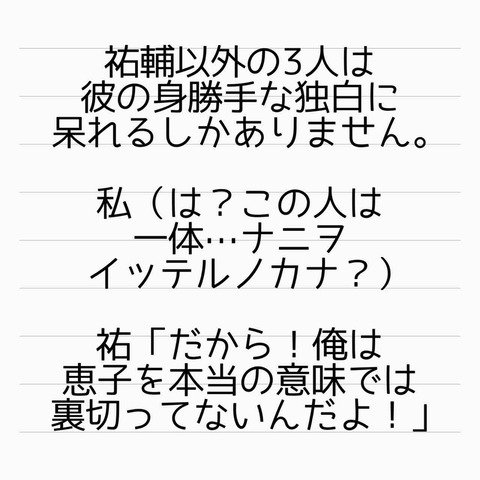 祐輔以外の3人は
彼の身勝手な独白に
呆れるしかありません。
私（は？この人は
一体…ナニヲ
イッテルノカナ？）
祐「だから！俺は
恵子を本当の意味では
裏切ってないんだよ！」